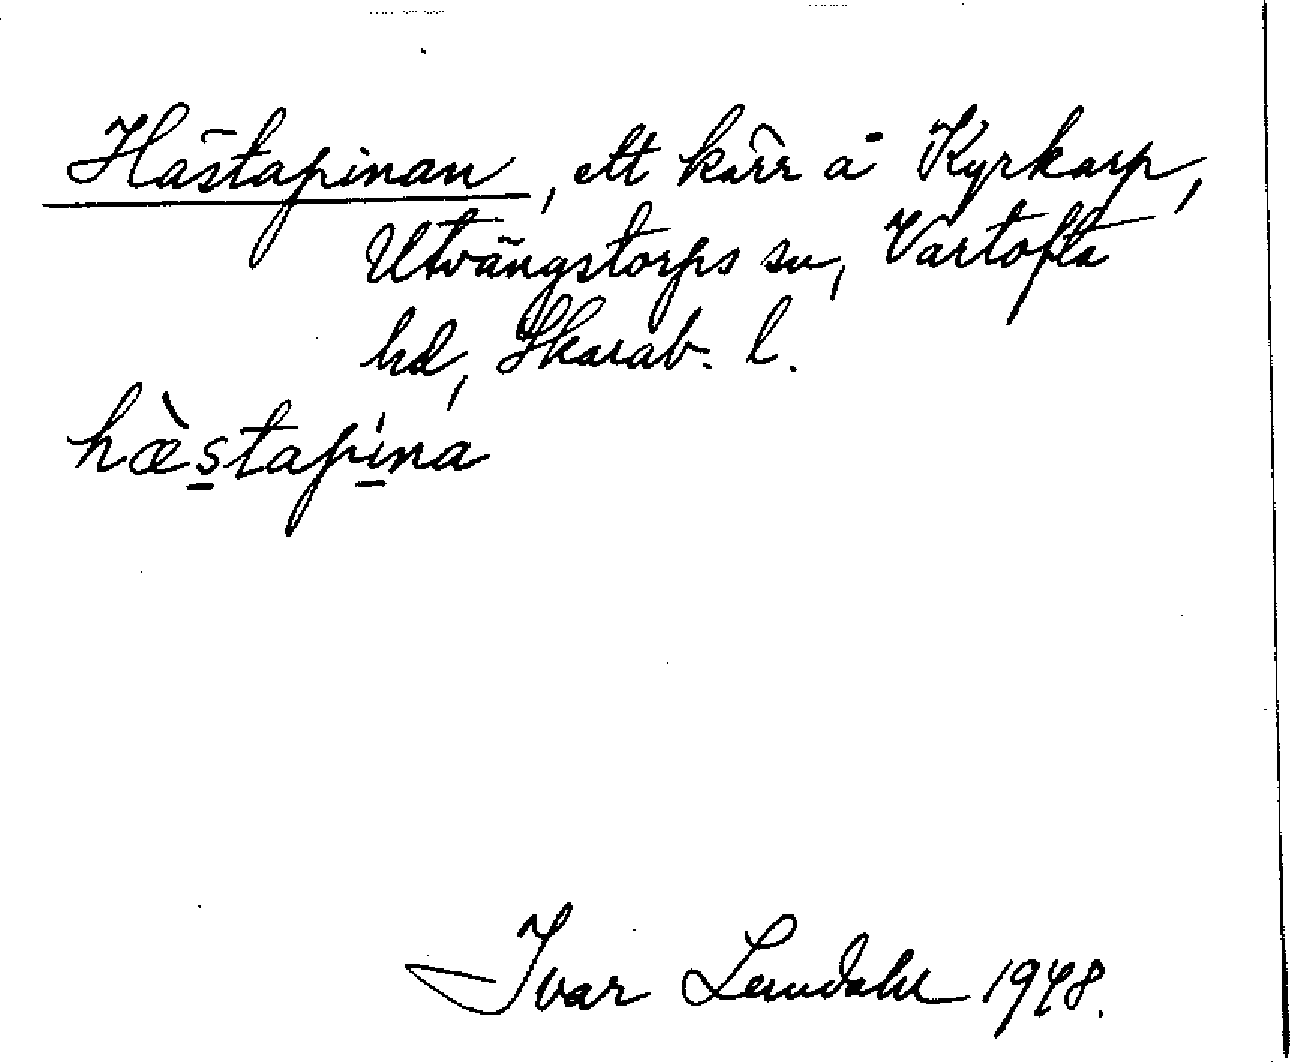 Hästapinan, ett kärr å Kyrkarp,
Utvängstorps sn, Vartofta
hd, Skarab. l.
hæ̀s̲tapi̲̍na
Ivar Lundahl 1948.